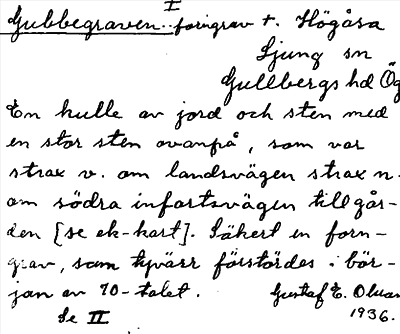 I
Gubbegraven.. forngrav t. Högåsa
Ljung sn
Gullbergs hd Ög
En kulle av jord och sten med
en stor sten ovanpå, som var
strax v. om landsvägen strax n.
om södra infartsvägen till går-
den [se ek-kart]. Säkert en forn-
grav, som tyvärr förstördes i bör-
jan av 70-talet. Gustaf E. Olsson
Se II 1936.